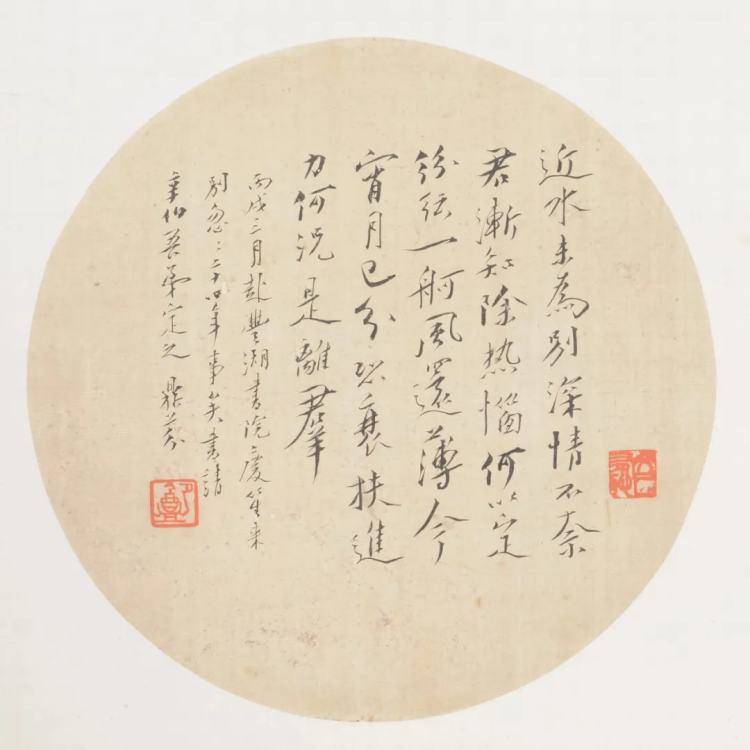 近水未為別深情不奈
君漸知除热惱何以定
紛紜一舸風還薄今
宵月已分恐衰扶進
力何況是離群
丙戌三月赴豐湖書院慶笙来
別忽二十四年事矣書請
伯善弟定之鼎芬